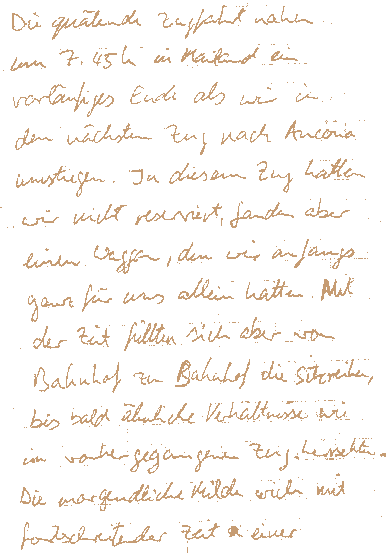 Die quälende Zugfahrt nahm
um 7.45h in Mailand ein
vorläufiges Ende als wir in
den nächsten Zug nach Ancona
umstiegen. In diesem Zug hatten
wir nicht reserviert, fanden aber
einen Waggon, den wir anfangs
ganz für uns allein hatten. Mit
der Zeit füllten sich aber von
Bahnhof zu Bahnhof die Sitzreihen,
bis bald ähnliche Verhältnisse wie
im vorhergegangenen Zug herrschten.
Die morgendliche Milde wich mit
fortschreitender Zeit einer